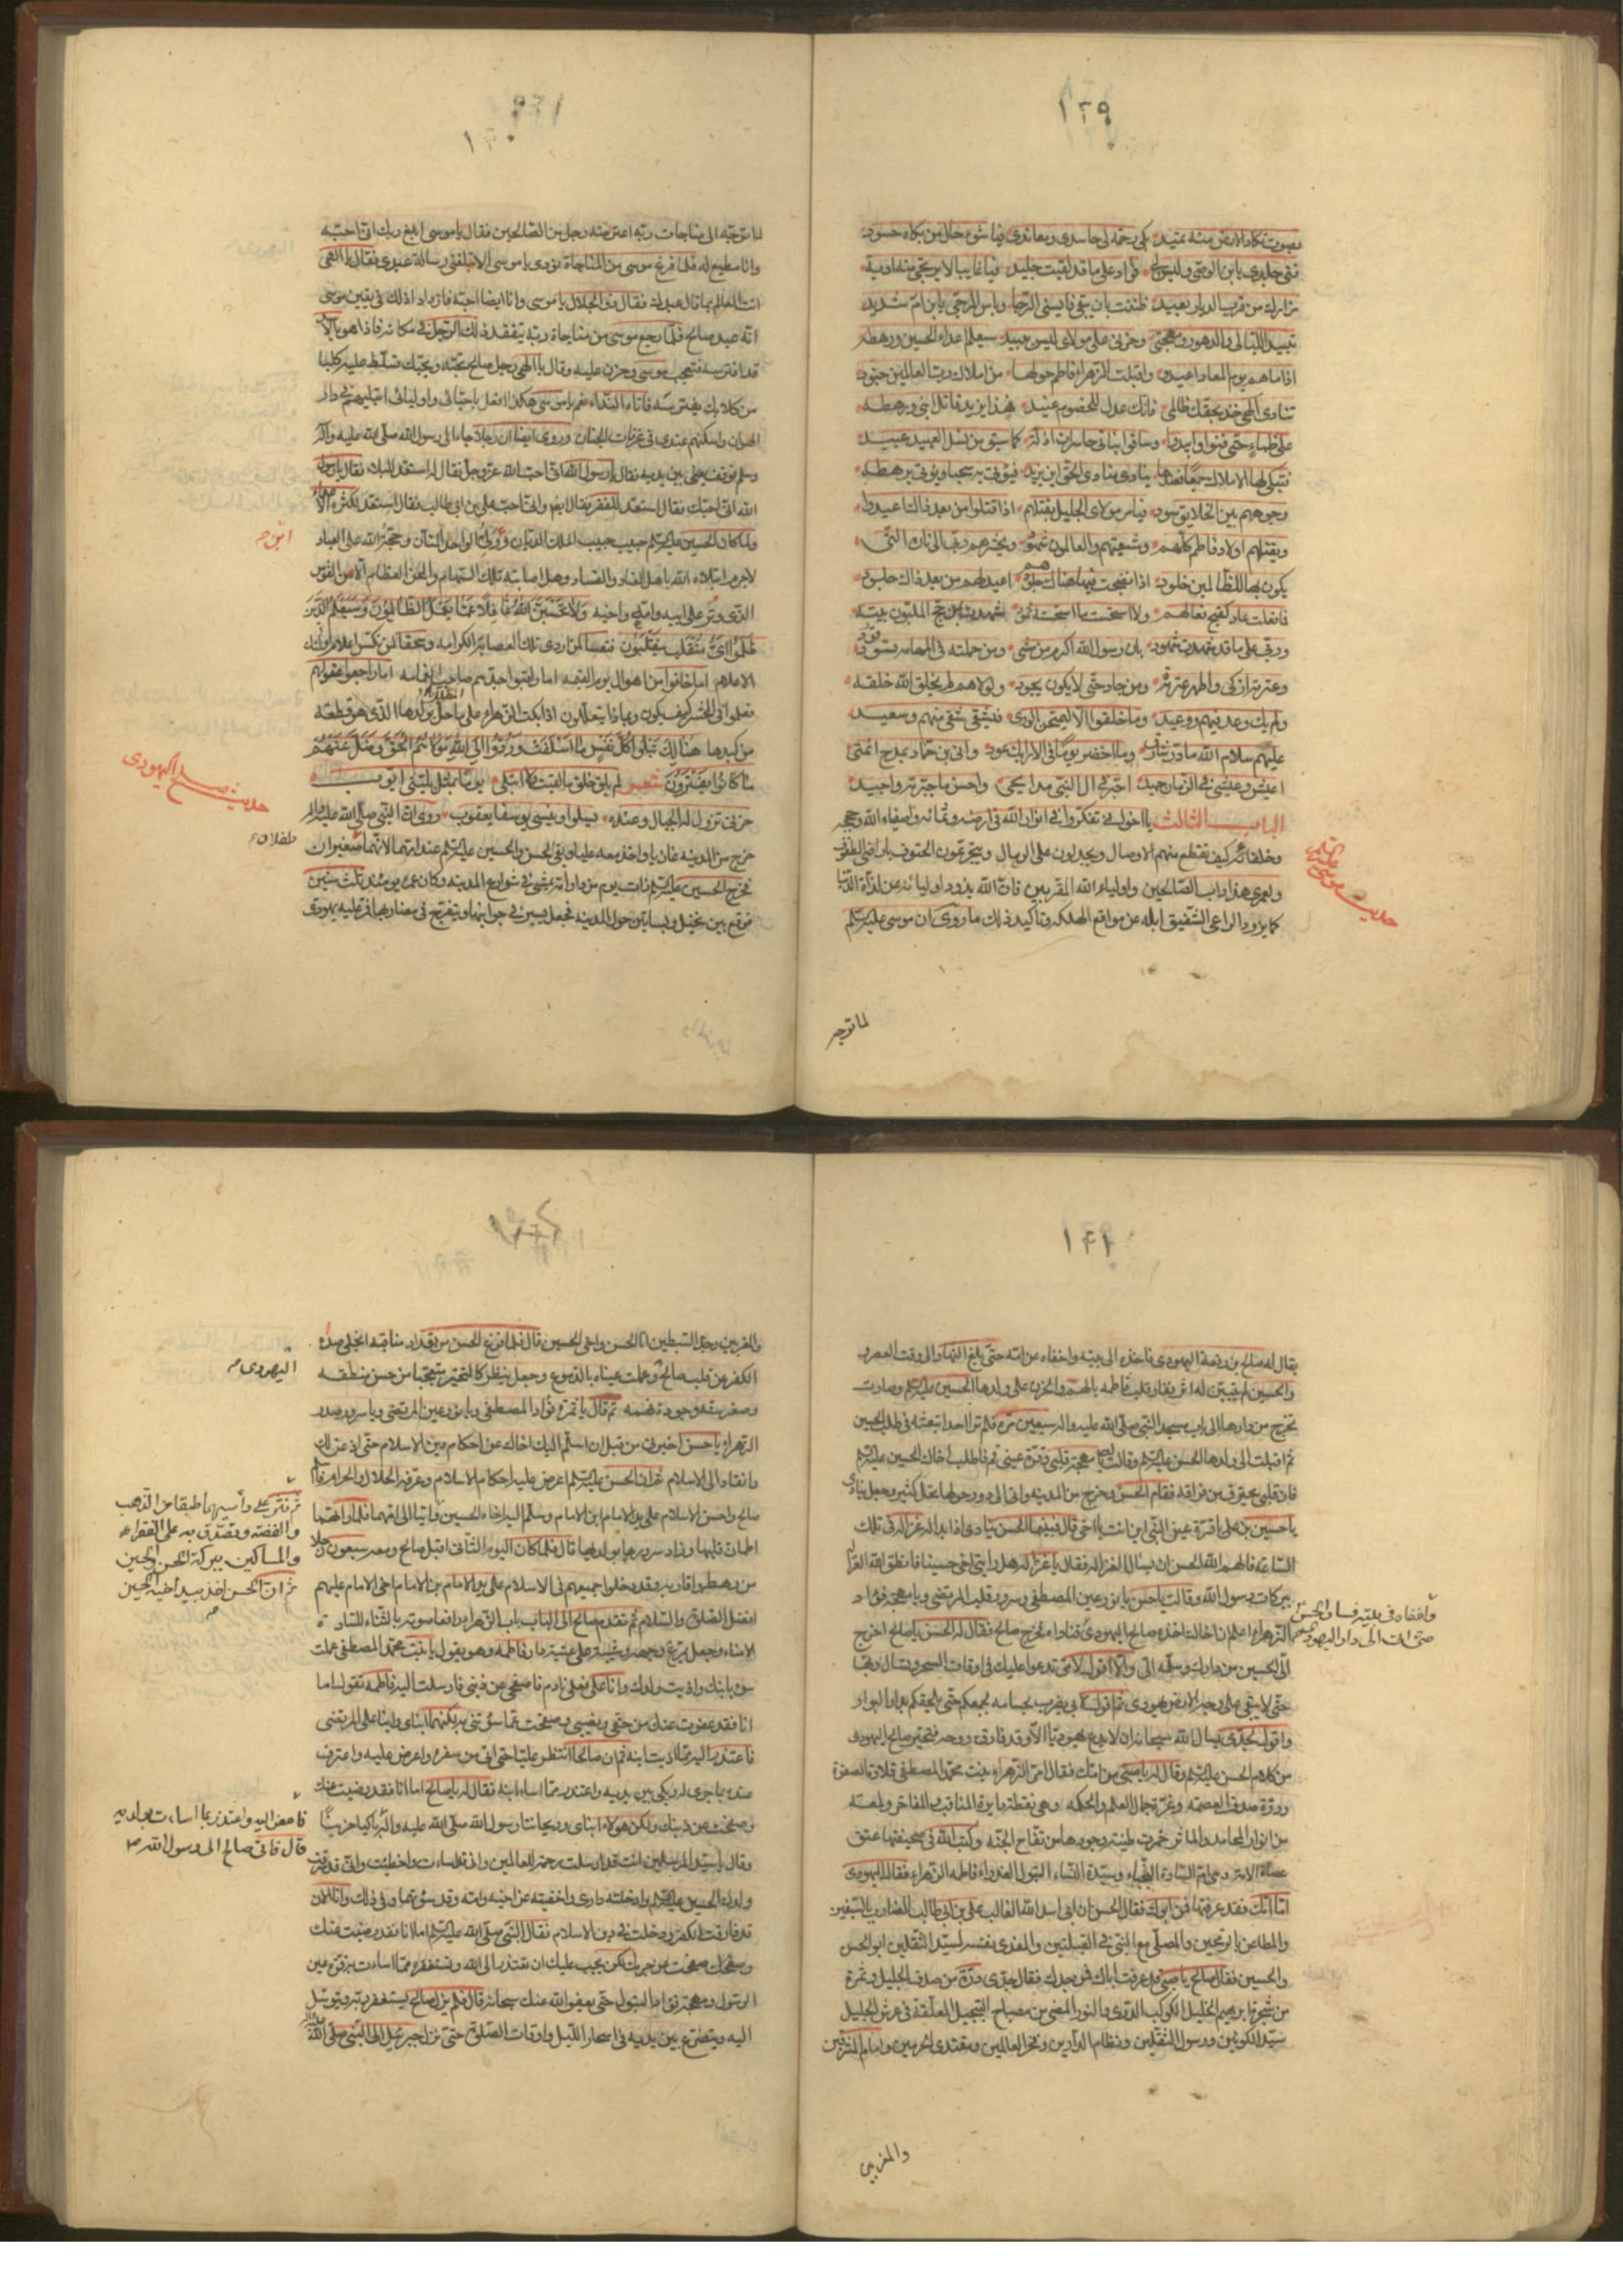 ١٣٩
بصوت تكاد الارض منه تميد بكى رحمة لي حاسدي ومعاندي فيا شوء حال من بكاه حسود
فنى جلدي يابن الوصي وليس لي فؤاد على ما قد لقيت جليد فيا غايبا لا يرتجى منه اوبة
مزارك من قرب الديار بعيد ظننت بان تبقى فايسني الرجا وياس المرجى يابن ام شديد
تبيد الليالي والدهور ومهجتي وحزني على مولاي ليس يبيد سيعلم اعداء الحسين ورهطه
اذا ما هم يوم المعاد اعيدوا واقبلت الزهراء فاطم حولها من املاك رب العالمين جنود
تنادي الهي خذ بحقك ظالمي فانك عدل للخصوم عنيد فهذا يزيد قاتل ابني ورهطه
على ظماء حتى فنوا وابيدوا وساق ابناتي حاسرات اذلة كما سيق من نسل العبيد عبيد
فتبكي لها الاملاك جمعا فعندها ينادي مناد الحق اين يزيد فيؤتى به سحبا ويؤتى برهطه
وجوههم بين الخلايق سود فيامر مولاي الجليل بقتلهم اذا قتلوا من بعد ذاك اعيدوا
ويقتلهم اولاد فاطم كلهم وشيعتهم والعالمون شهود ويحشرهم ربي الى نار التي
يكون بها للظالمين خلود اذا نضجت فيها هناك جلودهم اعيد لهم من بعد ذاك جلود
فما فعلت عاد كقبح فعالهم ولا استحسنت ما استحسنته ثمود
وربي على ما قد شهدت شهود بان رسول الله اكرم من مشى ومن حملته في المهامه قود
وعترته ازكى واطهر عترة ومن جاد حتى لا يكون يجود ولولاهم لم يخلق الله خلقه
ولم يك وعد فيهم ووعيد وما خلقوا الا ليمتحن الورى فيشقى شقي منهم وسعيد
عليهم سلام الله ما ذر شارق وما اخضر يوما في الاراك عود واني بن حماد بمدح ائمتي
اعيش وعيشي في الزمان حميد احبر في ال النبي مدايحي واحسن ما حبرته واجيد
الباب الثالث يا اخواني تفكروا في انوار الله في ارضه وامنائه واصفياء الله وحججه
وخلفائه كيف تقطع منهم الاوصال ويجدلون على الرمال ويتجرعون الحتوف باراضي الطفوف
ولعمري هذا داب الصالحين واولياء الله المقربين فان الله يذود اوليائه عن لذاة الدنيا
كما يذود الراعي الشفيق ابله عن مواقع الهلكه وتاكيد ذلك ما روي ان موسى عليه السلم
حديث موسى عليه السلم
لما توجه
١٤٠
لما توجه الى مناجات ربه اعترضه رجل من الصالحين فقال يا موسى ابلغ ربك اني احبه
وانا مطيع له فلما فرغ موسى من المناجاة نودي يا موسى الا تبلغني رسالة عبدي فقال يا الهي
انت العالم بما قال عبدك فقال ذو الجلال يا موسى وانا ايضا احبه فازداد اذلك في يقين موسى
انه عبد صالح فلما رجع موسى من مناجاة ربه يتفقد ذلك الرجل في مكانه فاذا هو بالاسد
قد افترسه فتعجب موسى وحزن عليه وقال يا الهي رجل صالح تحبه ويحبك تسلط عليه كلبا
من كلابك يفترسه فاتاه النداء نعم يا موسى هكذا افعل باحبائي واوليائي ابتليهم في دار
الهوان واسكنهم عندي في غرفات الجنان وروي ايضا ان رجلا جاء الى رسول الله صلى الله عليه وآله
وسلم فوقف بين يديه فقال يا رسول الله اني احب الله عز وجل فقال له استعد للبلاء فقال يا رسول
الله اني احبك فقال استعد للفقر فقال نعم واني احب علي بن ابي طالب فقال استعد لكثرة الاعداء
ولما كان الحسين عليه السلم حبيب حبيب الملك الديان ونور الواحد المنان وحجة الله على العباد
لاجرم ابتلاه الله باهل العناد والفساد وهل اصابته تلك السهام والمحن العظام الا من القوس
الذي وتر على ابيه وامه واخيه ولا تحسبن الله غافلا عما يعمل الظالمون وسيعلم الذين
ظلموا اي منقلب ينقلبون فتعسا لمن اردى تلك العصابة الكرامه وسحقا لمن نكس اعلام اولئك
الاعلام اما خافوا من اهوال يوم القيمه اما راقبوا جدهم صاحب الغمامه اما راجعوا عقولهم
فعلموا في الحشر كيف يكون وبماذا يتعللون اذا بكت الزهراء على ما حل بولدها الذي هو قطعة
من كبدها هنالك تبلوا كل نفس ما اسلفت وردوا الى الله مولاهم الحق وضل عنهم
ما كانوا يفترون شعر لم يلق خلق ما لقيت كما ابتلى يوما بمثل بليتي ايوب
حزني تزول له الجبال وعنده يسلوا وينسى يوسفا يعقوب روي ان النبي صلى الله عليه وآله
خرج من المدينة غازيا واخذ معه عليا وبقي الحسن والحسين عليهم السلم عند امهما لانهما صغيران
فخرج الحسين عليه السلم ذات يوم من دار امه يمشي في شوارع المدينه وكان عمره يومئذ ثلث سنين
فوقع بين نخيل وبساتين حول المدينه فجعل يسير في جوانبها ويتفرج في مضاربها فمر عليه يهودي
حديث صالح اليهودي
طفلان
١٤١
يقال له صالح بن رقعة اليهودي فاخذه الى بيته واخفاه عن امه حتى بلغ النهار الى وقت العصر
والحسين لم يتبين له اثر ففار قلب فاطمه بالهم والحزن على ولدها الحسين عليه السلم وصارت
تخرج من دارها الى باب مسجد النبي صلى الله عليه وآله سبعين مرة فلم تر احدا تبعثه في طلب الحسين
ثم اقبلت الى ولدها الحسن عليه السلم وقالت يا مهجة قلبي وقرة عيني قم فاطلب اخاك الحسين عليه السلم
فان قلبي يحترق من فراقه فقام الحسن وخرج من المدينه واتى الى دور حولها نخل كثير وجعل ينادي
يا حسين بن علي يا قرة عين النبي اين انت يا اخي قال فبينما الحسن ينادي اذ بدا له غزالة في تلك
الساعة فالهم الله الحسن ان يسال الغزاله فقال يا غزاله هل رايتي اخي حسينا فانطق الله الغزاله
ببركات رسول الله وقالت يا حسن يا نور عين المصطفى وسرور قلب المرتضى ويا مهجة فؤاد
الزهراء اعلم ان اخاك اخذه صالح اليهودي فناداه فخرج صالح فقال له الحسن يا صالح اخرج
الي الحسين من دارك وسلمه الي والا اقول لامي تدعوا عليك في اوقات السحر وتسال ربها
حتى لا يبقى على وجه الارض يهودي ثم اقول لابي يضرب بحسامه بجمعكم حتى يلحقكم بدار البوار
واقول لجدي يسال الله سبحانه ان لا يدع يهوديا الا وقد فارق روحه فتحير صالح اليهودي
من كلام الحسن عليه السلم وقال له يا صبي من امك فقال امي الزهراء بنت محمد المصطفى قلادة الصفوة
ودرة صدف العصمه وغرة جمال العلم والحكمه وهي نقطة دايرة المناقب والمفاخر ولمعة
من انوار المحامد والماثر خمرت طينة وجودها من تفاح الجنه وكتب الله في صحيفتها عتق
عصاة الامة وهي ام السادة النجباء وسيدة النساء البتول العذراء فاطمه الزهراء فقال اليهودي
اما امك فقد عرفتها فمن ابوك فقال الحسن ان ابي اسد الله الغالب علي بن ابي طالب الضارب بالسيفين
والطاعن بالرمحين والمصلي مع النبي في القبلتين والمفدي بنفسه لسيد الثقلين ابو الحسن
والحسين فقال صالح يا صبي قد عرفت اباك فمن جدك فقال جدي درة من صدف الجليل وثمرة
من شجرة ابرهيم الخليل الكوكب الدري والنور المضي من مصباح التبجيل المعلقة في عرش الجليل
سيد الكونين ورسول الثقلين ونظام الدارين وفخر العالمين ومقتدى الحرمين وامام المشرقين
واخفاه في بيته فسار الحسن
حتى اتى الى دار اليهودي
والمغربين
والمغربين وجد السبطين انا الحسن واخي الحسين قال فلما فرغ الحسن من تعداد مناقبه انجلى صدء
الكفر عن قلب صالح وهملت عيناه بالدموع وجعل ينظر كالمتحير متعجبا من حسن منطقه
وصغر سنه وجودة فهمه ثم قال يا ثمرة فؤاد المصطفى ويا نور عين المرتضى ويا سرور صدر
الزهراء يا حسن اخبرني من قبل ان اسلم اليك اخاك عن احكام دين الاسلام حتى اذعن لك
وانقاد الى الاسلام ثم ان الحسن عليه السلم عرض عليه احكام الاسلام وعرفه الحلال والحرام فاسلم
صالح واحسن الاسلام على يد الامام ابن الامام وسلم اليه اخاه الحسين واتيا الى امهما فلما راتهما
اطمان قلبها وزاد سرورها بولديها قال فلما كان اليوم الثاني اقبل صالح ومعه سبعون رجلا
من رهطه واقاربه وقد دخلوا جميعهم في الاسلام على يد الامام بن الامام اخي الامام عليهم
افضل الصلوة والسلام ثم تقدم صالح الى الباب باب الزهراء رافعا صوته بالثناء للسادة
الامناء وجعل يمرغ وجهه وشيبته على عتبة دار فاطمه وهو يقول يا بنت محمد المصطفى عملت
سوء بابنك واذيت ولدك وانا على فعلي نادم فاصفحي عن ذنبي فارسلت اليه فاطمه تقول اما
انا فقد عفوت عنك من حقي ونصيبي وصفحت عما سؤتني به لكنهما ابناي وابنا علي المرتضى
فاعتذر اليه مما اذيت ابنه ثم ان صالحا انتظر عليا حتى اتى من سفره واعرض عليه واعترف
عنده بما جرى له وبكى بين يديه واعتذر مما اساء ابنه فقال له يا صالح اما انا فقد رضيت عنك
وصفحت عن ذنبك ولكن هولاء ابناي وريحانتا رسول الله صلى الله عليه وآله باكيا حزينا
وقال يا سيد المرسلين انت قد ارسلت رحمة للعالمين واني قد اسات واخطيت واني قد سرقت
ولدك الحسين عليه السلم وادخلته داري واخفيته عن اخيه وامه وقد سؤتهما في ذلك وانا الان
قد فارقت الكفر ودخلت في دين الاسلام فقال النبي صلى الله عليه السلم اما انا فقد رضيت عنك
وصفحت عن جرمك لكن يجب عليك ان تعتذر الى الله وتستغفره مما اسات به قرة عين
الرسول ومهجة فؤاد البتول حتى يعفو الله عنك سبحانه قال فلم يزل صالح يستغفر ربه ويتوسل
اليه ويتضرع بين يديه في اسحار الليل واوقات الصلوة حتى نزل جبرئيل على النبي صلى الله
اليهودي
ثم نثر على رأسيهما طبقا من الذهب
والفضة وتصدق به على الفقراء
والمساكين ببركة الحسن والحسين
ثم ان الحسن اخذ بيد اخيه الحسين
فامض اليه واعتذر بما اسات بولديه
قال فاتى صالح الى رسول الله ص